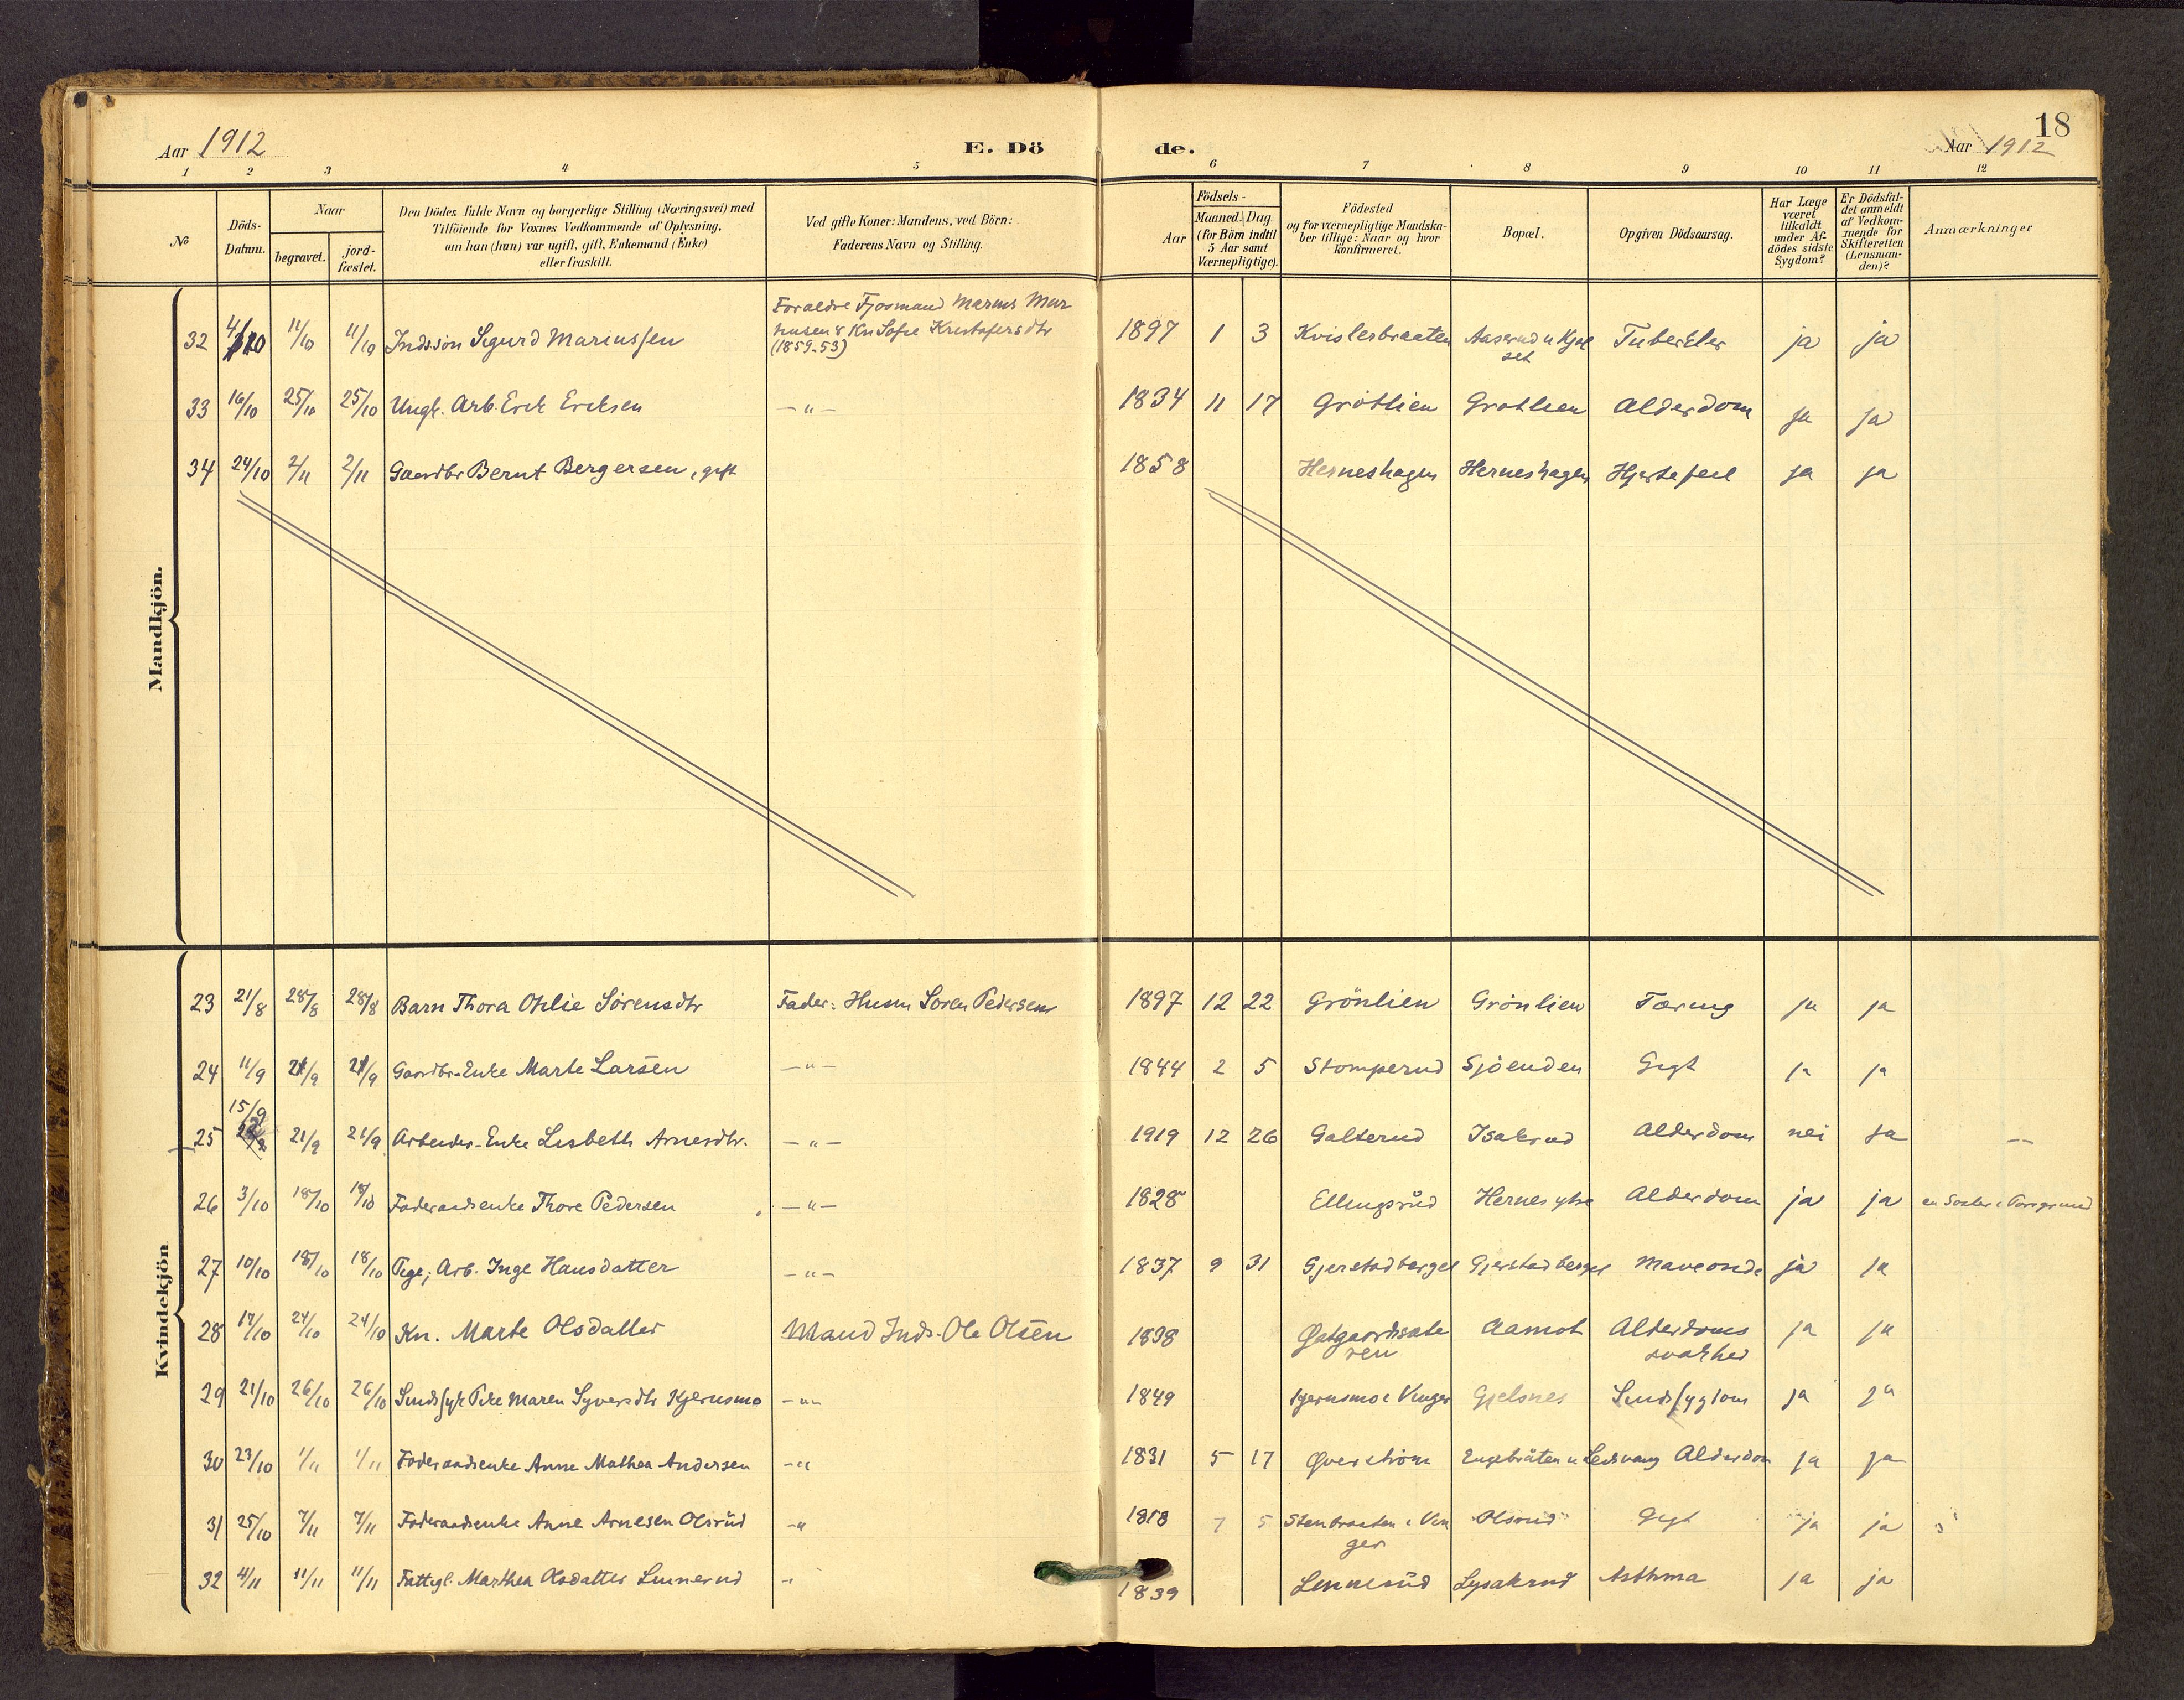 18
Aar 1912 E. Dö de. Aar 1912
1 2 3 4 5 6 7 8 9 10 11 12
No
Döds-Datum.
Naar
begravet.
jord-fæstet.
Den Dödes fulde Navn og borgerlige Stilling (Næringsvei) med
Tilföiende for Voxnes Vedkommende af Oplysning,
om han (hun) var ugift, gift, Enkemand (Enke)
eller fraskilt.
Ved gifte Koner: Mandens, ved Börn:
Faderens Navn og Stilling.
Födsels-
Aar
Maaned. Dag.
(for Börn indtil
5 Aar samt
Værnepligtige).
Födested
og for værnepligtige Mandska-
ber tillige: Naar og hvor
konfirmeret.
Bopæl.
Opgiven Dödsaarsag.
Har Læge
været
tilkaldt
under Af-
dödes sidste
Sygdom?
Er Dödsfal-
det anmeldt
af Vedkom-
mende for
Skifteretten
(Lensman-
den)?
Anmærkninger
Mandkjön.
Foraldre Fjosmand Marius Mar
husen & Kn Sofie Kristofersdtr
(1859-53)
32 4/10 11/10 11/10 Inds.sön Sigurd Mariussen 1897 1 3 Kvislesbraaten Aaserud u Kjol
set Tuberkler ja ja
33 16/10 25/10 25/10 Ungk. Arb. Erik Eriksen —"— 1834 11 17 Grötlien Grötlien Alderdom ja ja
34 24/10 2/11 2/11 Gaardbr Bernt Bergersen, gift 1858 Herneshagen Herneshagen Hjertefeil ja ja
Kvindekjön
23 21/8 28/8 28/8 Barn Thora Otilie Sörensdtr Fader: Husm Soren Pedersen 1897 12 22 Grönlien Grönlien Tæring ja ja
24 11/9 21/9 21/9 Gaardbr-Enke Marte Larsen —"— 1844 2 5 Stomperud Sjöenden Gigt ja ja
15/9
25 21/9 21/9 Arbeider-Enke Lisbeth Arnesdtr. —"— 1919 12 26 Galterud Isakrud Alderdom nei ja —
26 3/10 18/10 18/10 Föderaadsenke Thore Pedersen —"— 1828 Ellingsrud Hernes ytre Alderdom ja ja en Soster i Porsgrund
27 10/10 18/10 18/10 Pige, Arb. Inge Hansdatter —"— 1837 9 31 Gjerstadberget Gjerstadberget Maveonde ja ja
28 17/10 24/10 24/10 Kn. Marte Olsdatter Mand Inds. Ole Olsen 1838 Østgaardssæte
ren Aamot Alderdoms
svakhed ja ja
29 21/10 26/10 26/10 Sindssyk Pike Maren Syversdtr Kjernsmo —"— 1849 Kjernsmo i Vinger Gjelsnes Sindssygdom ja ja
30 23/10 1/11 1/11 Föderaadsenke Anne Mathea Andersen —" 1831 5 17 Øverström Engebråten u Leirvang Alderdom ja ja
31 25/10 7/11 7/11 Föderaadsenke Anne Arnesen Olsrud —" 1818 7 5 Stenbraaten i Vin
ger Olsrud Gigt ja ja
32 4/11 11/11 11/11 Fattigl. Marthea Olsdatter Linnerud —" 1839 Linnerud Lysakrud Asthma ja ja